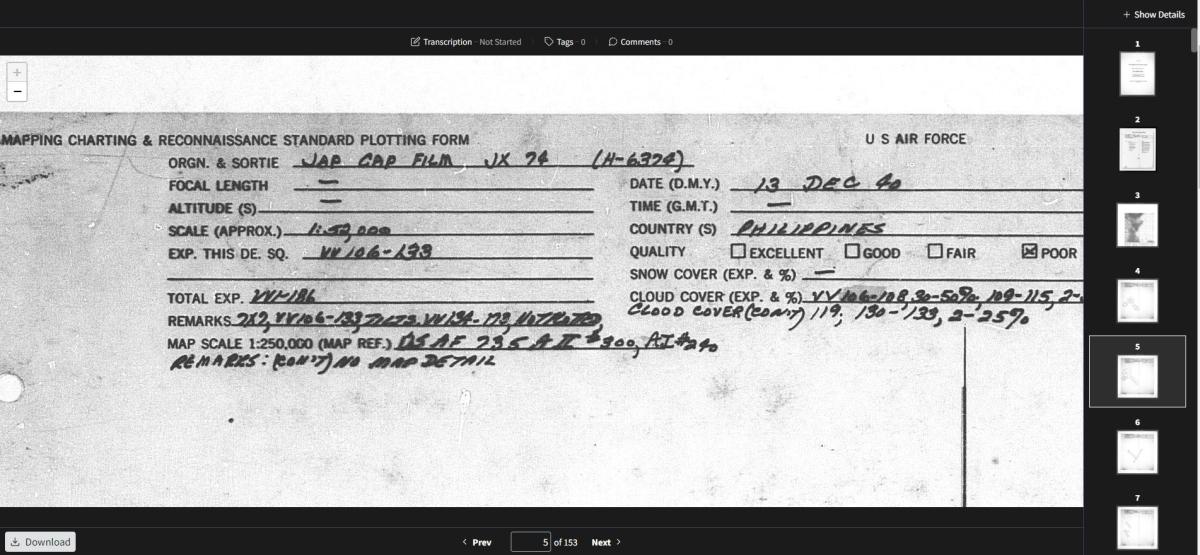 + Show Details
Transcription - Not Started Tags - 0 Comments - 0
+
−
MAPPING CHARTING & RECONNAISSANCE STANDARD PLOTTING FORM
U S AIR FORCE
ORGN. & SORTIE JAP CAP FILM JX 74 (H-6374)
FOCAL LENGTH —
DATE (D.M.Y.) 13 DEC 40
ALTITUDE (S) —
TIME (G.M.T.) —
SCALE (APPROX.) 1:52,000
COUNTRY (S) PHILIPPINES
EXP. THIS DE. SQ. VV106-133
QUALITY EXCELLENT GOOD FAIR POOR
SNOW COVER (EXP. & %) —
TOTAL EXP.
CLOUD COVER (EXP. & %) VV106-108, 30-50%, 109-115, 2-
CLOUD COVER (CON'T) 119, 130-133, 2-25%
REMARKS VV106-133, TILTS, VV134-173, NOT PLOTTED,
MAP SCALE 1:250,000 (MAP REF.) 
REMARKS: (CON'T) NO MAP DETAIL
1
2
3
4
5
6
7
Download
Prev 5 of 153 Next